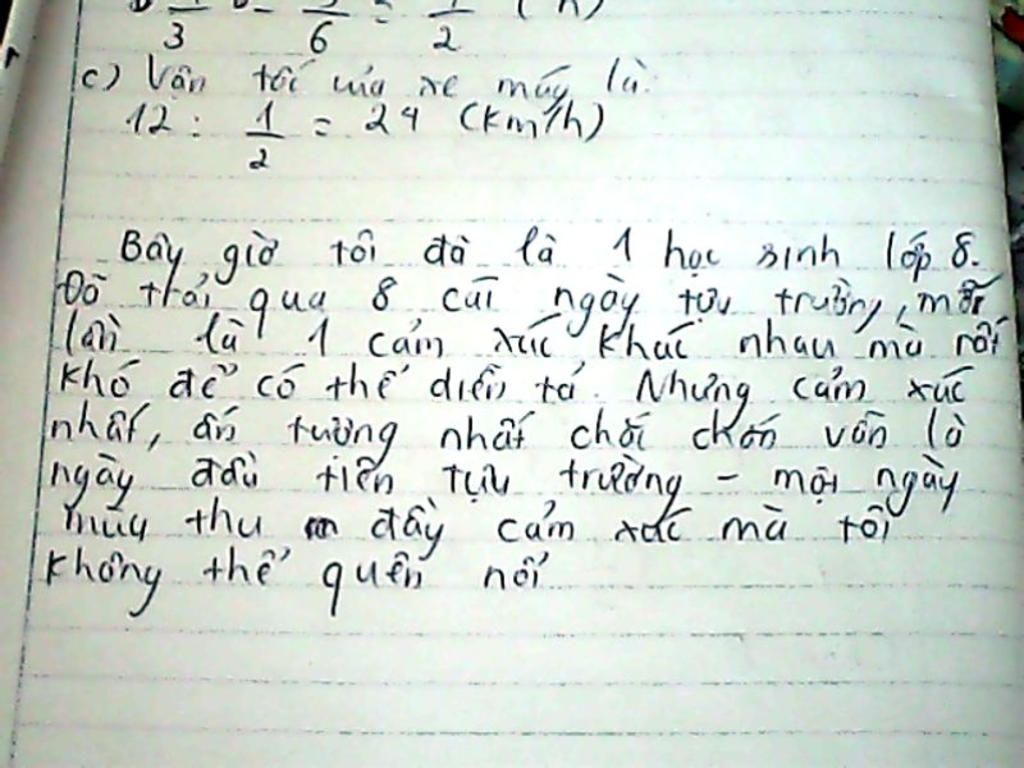 3 6 = 1/2 (h)
c) Vân tốc của xe máy là:
12 : 1/2 = 24 (km/h)
Bây giờ tôi đã là 1 học sinh lớp 8.
Đã trải qua 8 cái ngày tựu trường, mỗi
lần là 1 cảm xúc khác nhau mà rất
khó để có thể diễn tả. Nhưng cảm xúc
nhất, ấn tượng nhất chắc chắn vẫn là
ngày đầu tiên tựu trường - một ngày
mùa thu đầy cảm xúc mà tôi
không thể quên nổi